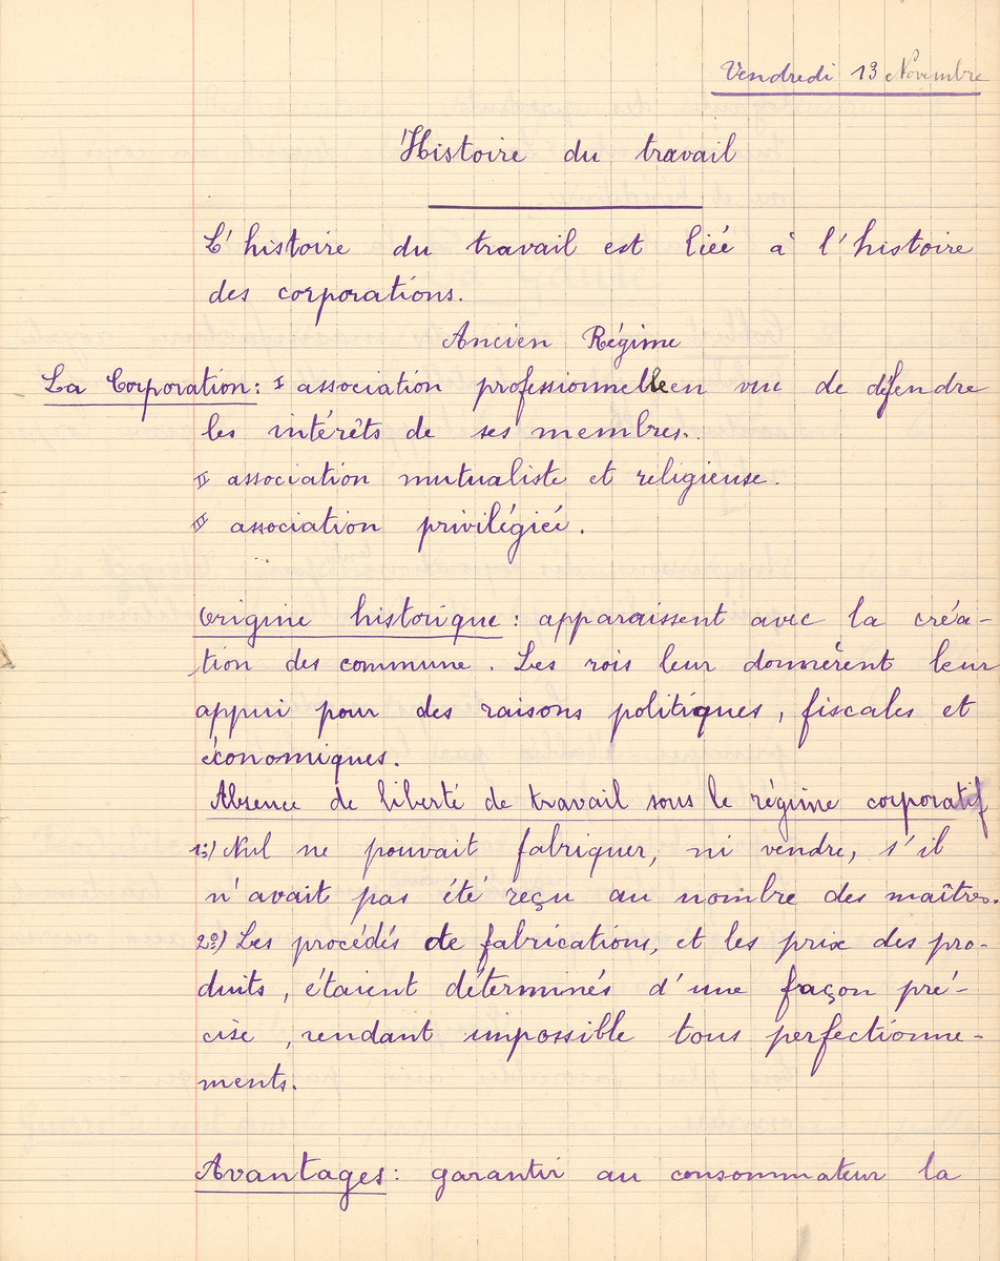 Vendredi 13 Novembre
Histoire du travail
L'histoire du travail est liée à l'histoire
des corporations.
Ancien Régime
La Corporation : I association professionnelle en vue de défendre
les intérêts de ses membres.
II association mutualiste et religieuse.
III association privilégiée.
Origine historique : apparaissent avec la créa-
tion des commune. Les rois leur donnèrent leur
appui pour des raisons politiques, fiscales et
économiques.
Absence de liberté de travail sous le régime corporatif
1º) Nul ne pouvait fabriquer, ni vendre, s'il
n'avait pas été reçu au nombre des maîtres.
2º) Les procédés de fabrications, et les prix des pro-
duits, étaient déterminés d'une façon pré-
cise, rendant impossible tous perfectionne-
ments.
Avantages : garantir au consommateur la